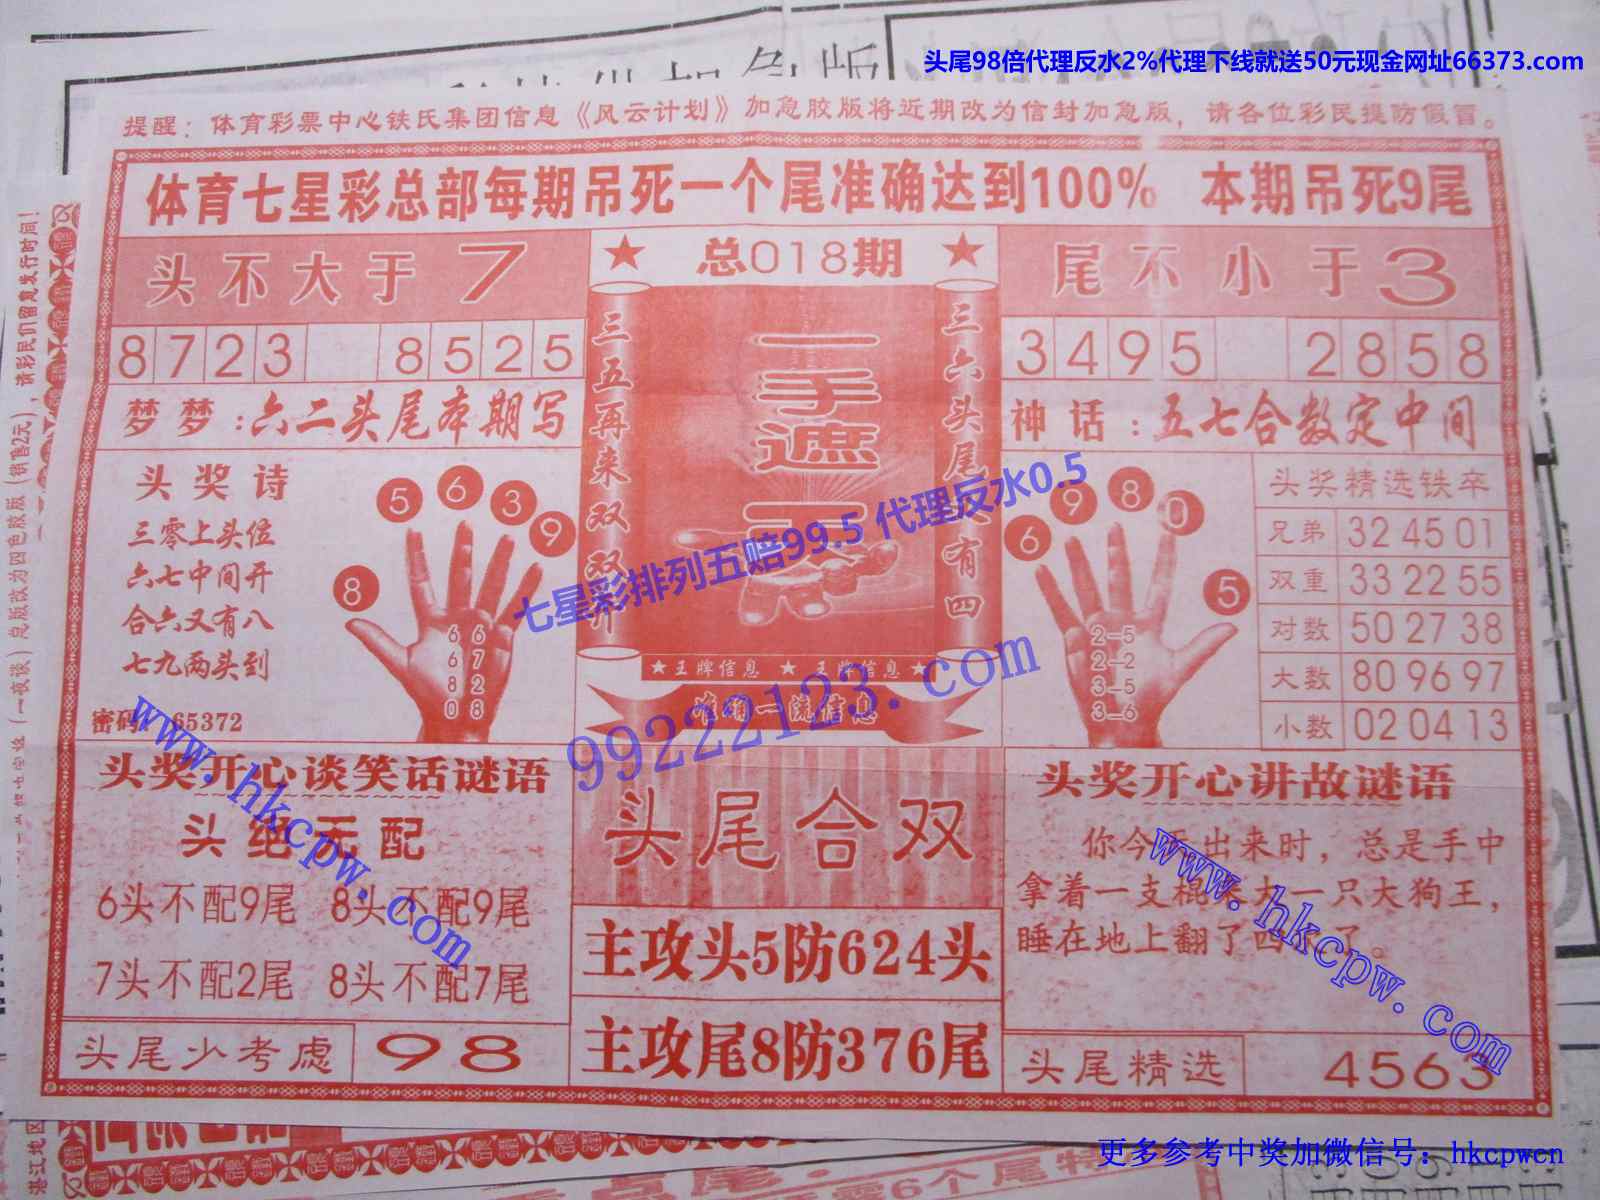 头尾98倍代理反水2%代理下线就送50元现金网址66373.com
提醒：体育彩票中心铁氏集团信息《风云计划》加急胶版将近期改为信封加急版，请各位彩民提防假冒。
体育七星彩总部每期吊死一个尾准确达到100% 本期吊死9尾
头不大于7
★ 总018期 ★
尾不小于3
8723 8525
3495 2858
三五再来双双开
一手遮天
三六头尾又有四
梦梦：六二头尾本期写
神话：五七合数定中间
头奖诗
三零上头位
六七中间开
合六又有八
七九两头到
密码 65372
8 5 6 3 9
6 6
6 7
8 2
0 8
6 9 8 0 5
2–5
2–2
3–5
3–6
头奖精选铁卒
兄弟 32 45 01
双重 33 22 55
对数 50 27 38
大数 80 96 97
小数 02 04 13
★王牌信息 ★王牌信息★
准确一流信息
七星彩排列五赔99.5 代理反水0.5
99222123.com
头奖开心谈笑话谜语
头绝无配
6头不配9尾 8头不配9尾
7头不配2尾 8头不配7尾
头尾少考虑 98
头尾合双
主攻头5防624头
主攻尾8防376尾
头奖开心讲故谜语
你今天出来时，总是手中
拿着一支棍来打一只大狗王，
睡在地上翻了四
头尾精选 4563
www.hkcpw.com
www.hkcpw.com
更多参考中奖加微信号：hkcpwcn